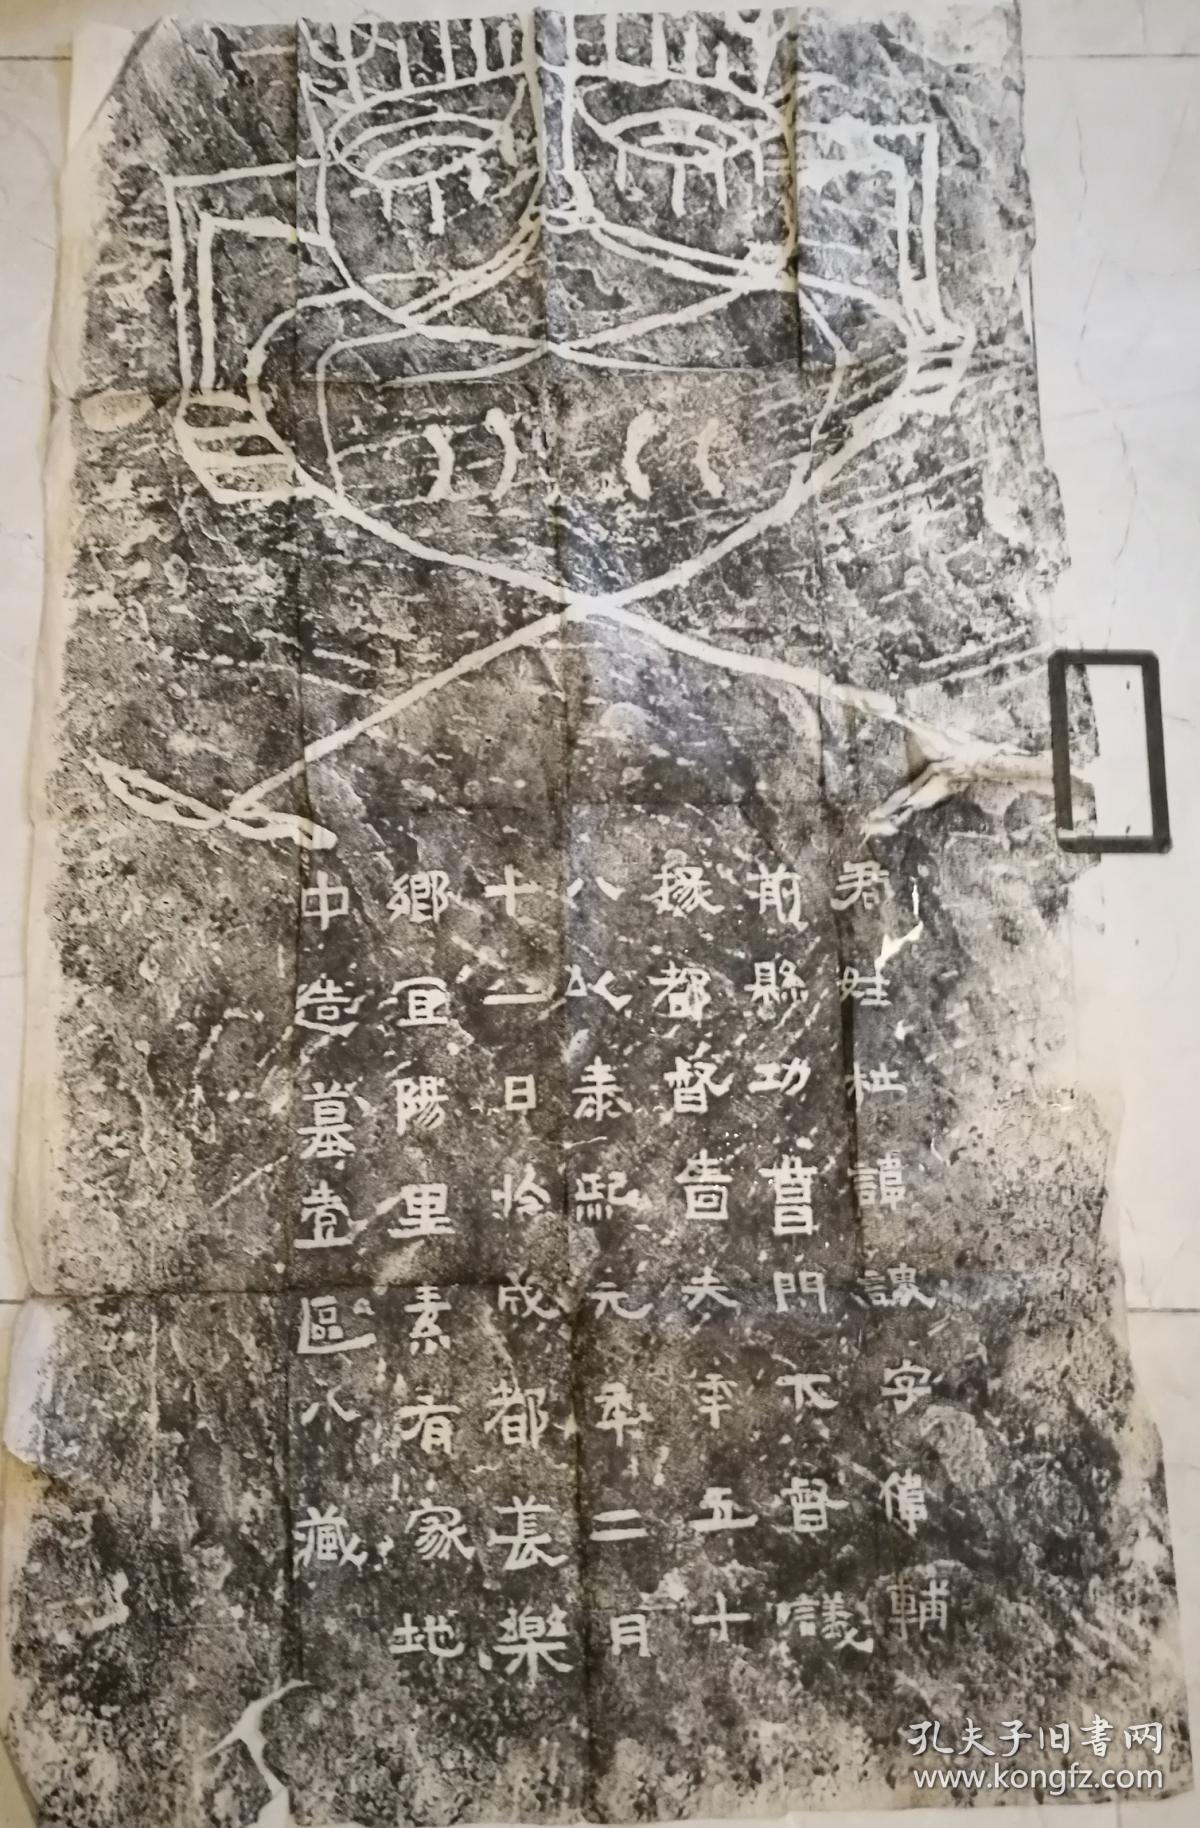 君姓杜諱謖字偉輔
前縣功曹門下督議
掾都督嗇夫年五十
八以泰熙元年二月
十一日於成都萇樂
鄉宜陽里素有家地
中造墓壹區八藏
孔夫子旧书网
www.kongfz.com